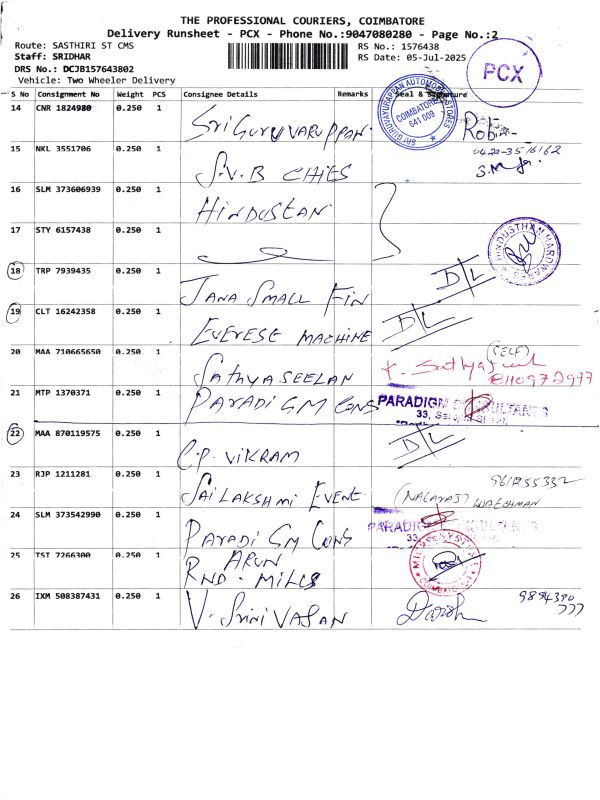 THE PROFESSIONAL COURIERS, COIMBATORE
Delivery Runsheet - PCX - Phone No.:9047080280 - Page No.:2
Route: SASTHIRI ST CMS
RS No.: 1576438
Staff: SRIDHAR
RS Date: 05-Jul-2025
DRS No.: DCJB157643802
Vehicle: Two Wheeler Delivery
PCX
S No Consignment No Weight PCS Consignee Details Remarks Seal & Signature
14 CNR 1824980 0.250 1 Sri Guruvaruppan
SRI GURUVAYURAPPAN AUTOMOBILE STORES
COIMBATORE
641 009
15 NKL 3551706 0.250 1 S.V.B CHIES
0422-3516162
16 SLM 373606939 0.250 1 HINDUSTAN
17 STY 6157438 0.250 1
HINDUSTHAN HARDWARES
18 TRP 7939435 0.250 1 JANA SMALL FIN D/L
19 CLT 16242358 0.250 1 EVERESE MACHINE D/L
20 MAA 710665650 0.250 1 SATHYASEELAN
(SELF)
8110972977
21 MTP 1370371 0.250 1 PARADIGM CONS
PARADIGM CONSULTANTS
22 MAA 870119575 0.250 1 C.P. VIKRAM D/L
23 RJP 1211281 0.250 1 SAI LAKSHMI EVENT
(NAGARAJ) WATCHMAN
24 SLM 373542990 0.250 1 PARADIGM CONS
PARADIGM CONSULTANTS
25 TST 7266300 0.250 1 ARUN
RND. MILLS
26 IXM 508387431 0.250 1 V. SRINIVASAN
9894390
777